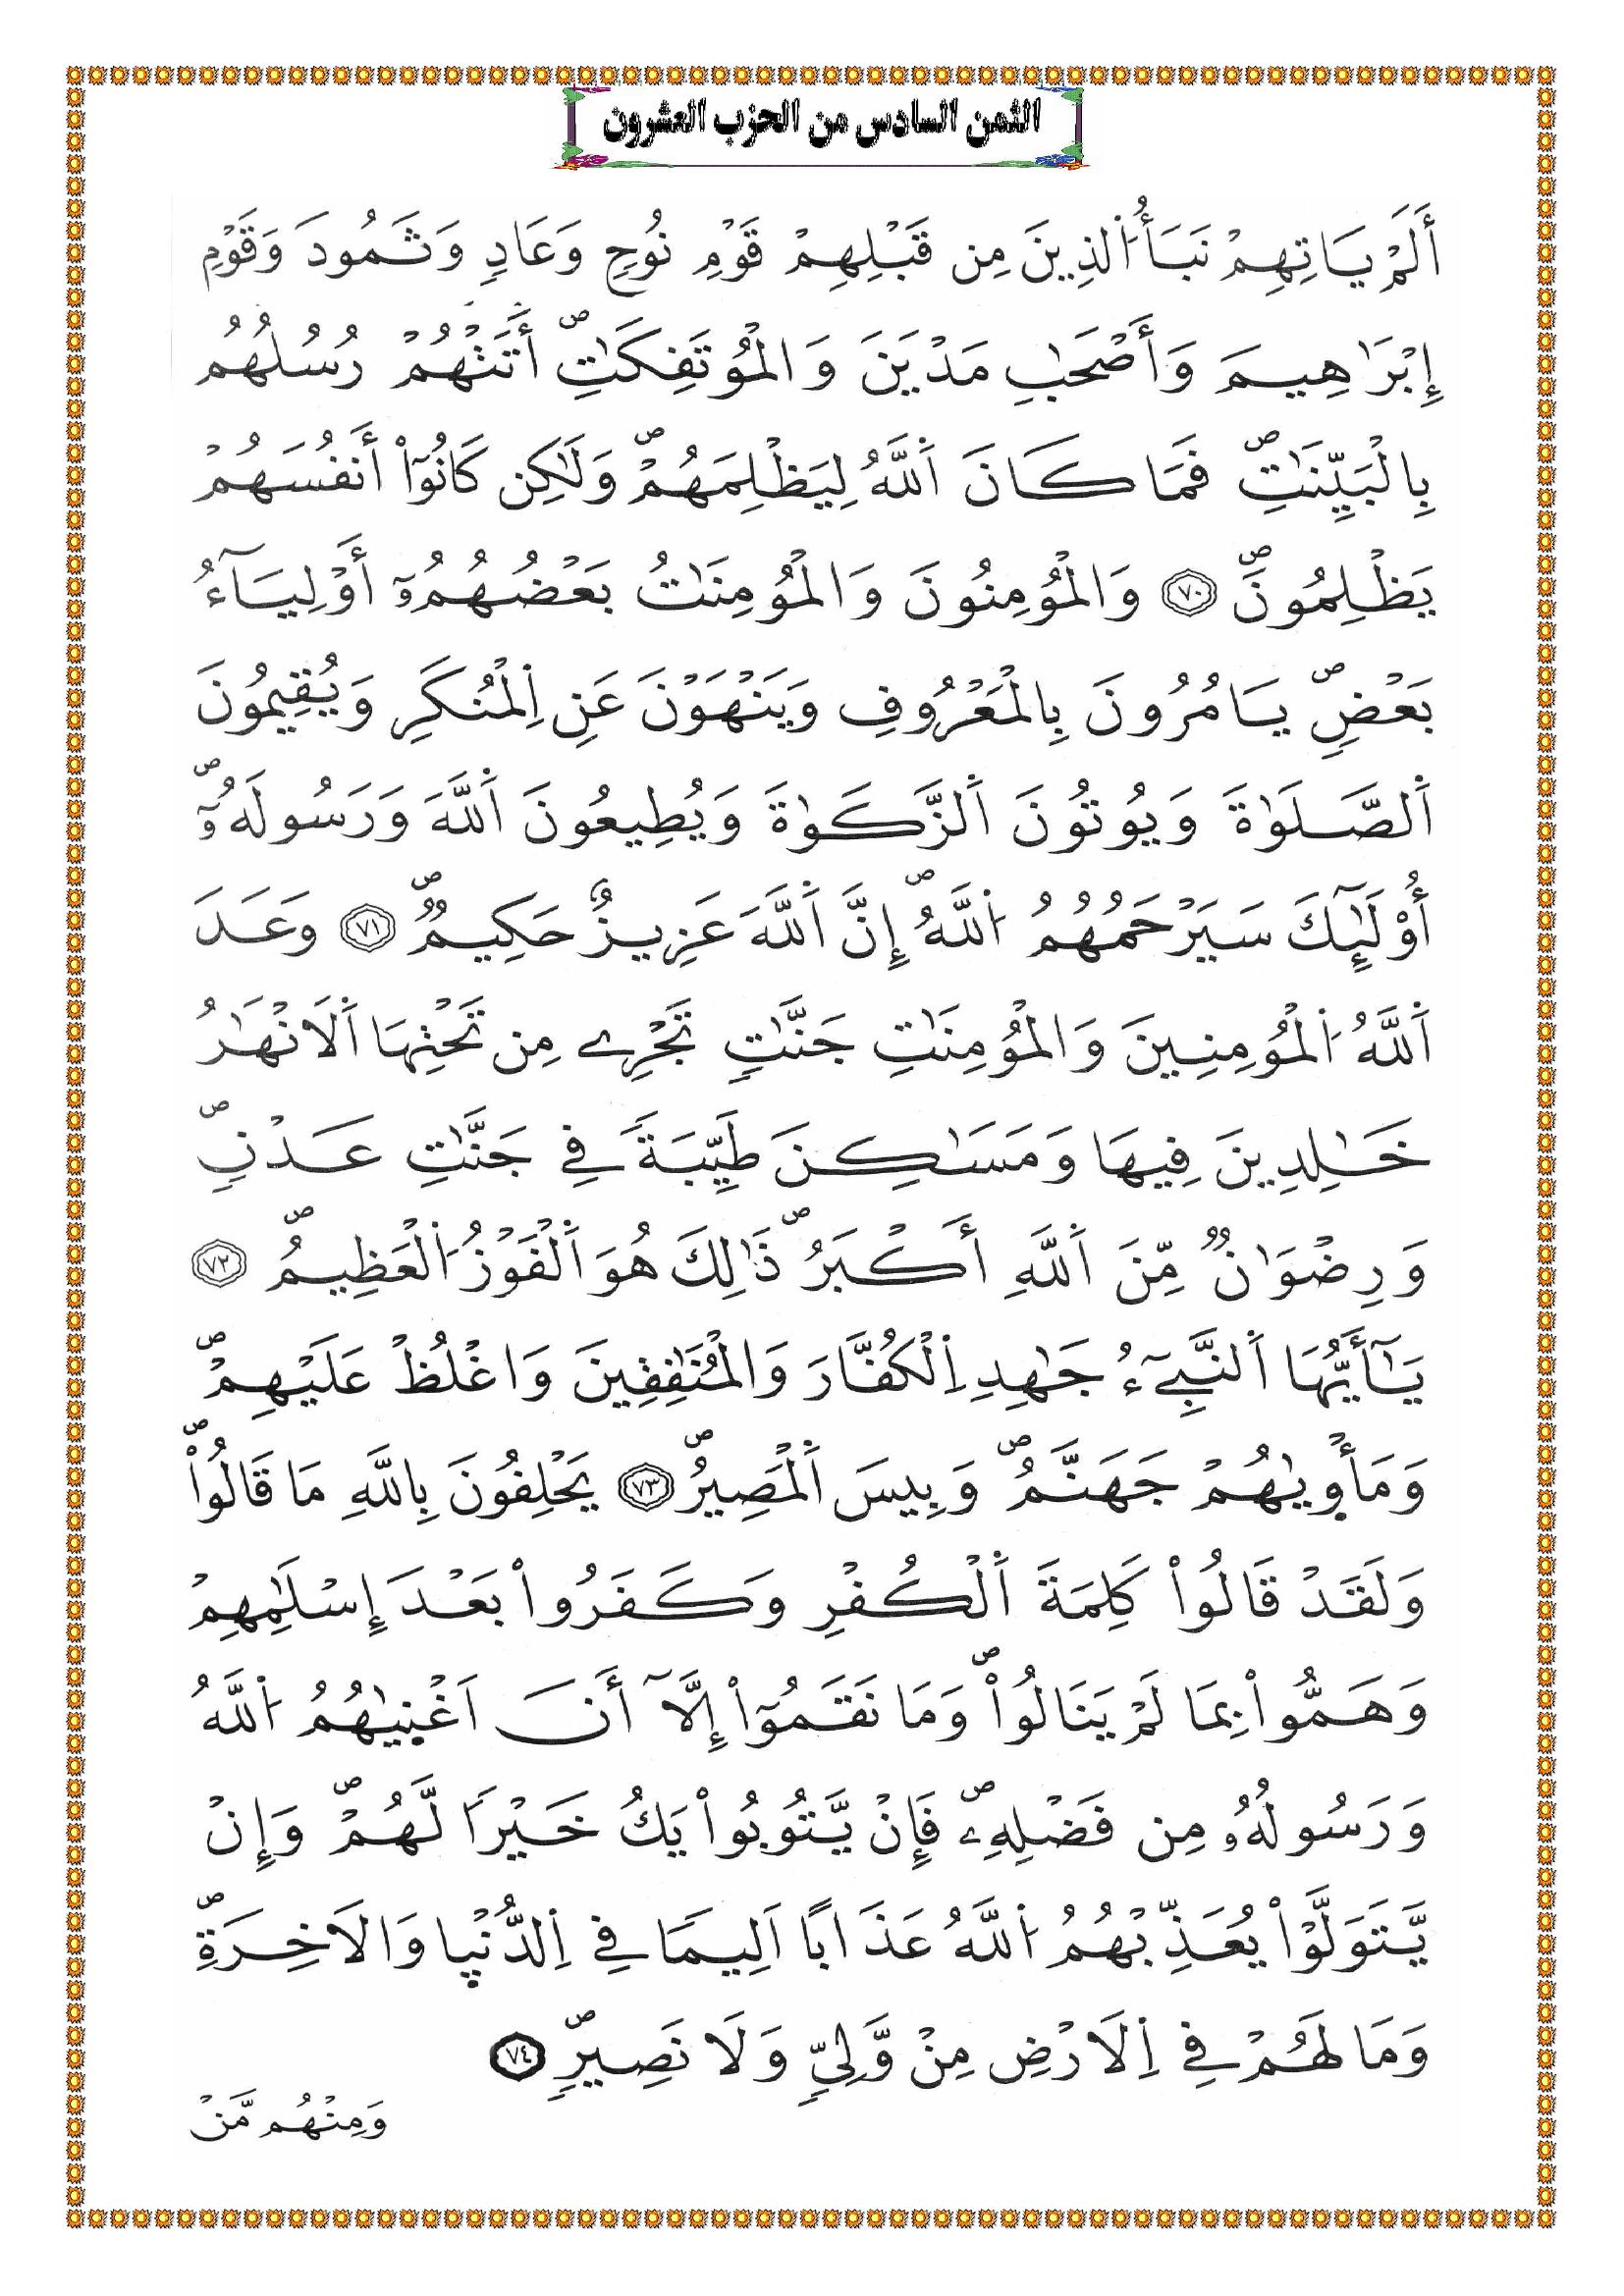 الثمن السادس من الحزب العشرون
أَلَمْ يَاتِهِمْ نَبَأُ اُلذِينَ مِن قَبْلِهِمْ قَوْمِ نُوحٍ وَعَادٍ وَثَمُودَ وَقَوْمِ
إِبْرَٰهِيمَ وَأَصْحَٰبِ مَدْيَنَ وَالْمُوتَفِكَٰتِۖ أَتَتْهُمْ رُسُلُهُم
بِالْبَيِّنَٰتِۖ فَمَا كَانَ اَللَّهُ لِيَظْلِمَهُمْۖ وَلَٰكِن كَانُوٓاْ أَنفُسَهُمْ
يَظْلِمُونَۖ ٧٠ وَالْمُومِنُونَ وَالْمُومِنَٰتُ بَعْضُهُمُۥٓ أَوْلِيَآءُ
بَعْضٖۖ يَامُرُونَ بِالْمَعْرُوفِ وَيَنْهَوْنَ عَنِ اِلْمُنكَرِ وَيُقِيمُونَ
اَلصَّلَوٰةَ وَيُوتُونَ اَلزَّكَوٰةَ وَيُطِيعُونَ اَللَّهَ وَرَسُولَهُۥٓۖ
أُوْلَٰٓئِكَ سَيَرْحَمُهُمُ اُللَّهُۖ إِنَّ اَللَّهَ عَزِيزٌ حَكِيمٞۖ ٧١ وَعَدَ
اَللَّهُ اُلْمُومِنِينَ وَالْمُومِنَٰتِ جَنَّٰتٖ تَجْرِے مِن تَحْتِهَا اَلَانْهَٰرُ
خَٰلِدِينَ فِيهَا وَمَسَٰكِنَ طَيِّبَةٗ فِے جَنَّٰتِ عَدْنٖۖ
وَرِضْوَٰنٞ مِّنَ اَللَّهِ أَكْبَرُۖ ذَٰلِكَ هُوَ اَلْفَوْزُ اُلْعَظِيمُۖ ٧٢
يَٰٓأَيُّهَا اَلنَّبِےٓءُ جَٰهِدِ اِلْكُفَّارَ وَالْمُنَٰفِقِينَ وَاغْلُظْ عَلَيْهِمْۖ
وَمَأْوٜيٰهُمْ جَهَنَّمُۖ وَبِيسَ اَلْمَصِيرُۖ ٧٣ يَحْلِفُونَ بِاللَّهِ مَا قَالُواْۖ
وَلَقَدْ قَالُواْ كَلِمَةَ اَلْكُفْرِ وَكَفَرُواْ بَعْدَ إِسْلَٰمِهِمْ
وَهَمُّواْ بِمَا لَمْ يَنَالُواْۖ وَمَا نَقَمُوٓاْ إِلَّآ أَنَ اَغْنٜيٰهُمُ اُللَّهُ
وَرَسُولُهُۥ مِن فَضْلِهِۦۖ فَإِنْ يَّتُوبُواْ يَكُ خَيْراٗ لَّهُمْۖ وَإِنْ
يَّتَوَلَّوْاْ يُعَذِّبْهُمُ اُللَّهُ عَذَاباً اَلِيماٗ فِے اِلدُّنْيٜا وَالَاخِرَةِۖ
وَمَا لَهُمْ فِے اِلَارْضِ مِنْ وَّلِيّٖ وَلَا نَصِيرٖۖ ٧٤
وَمِنْهُم مَّنْ